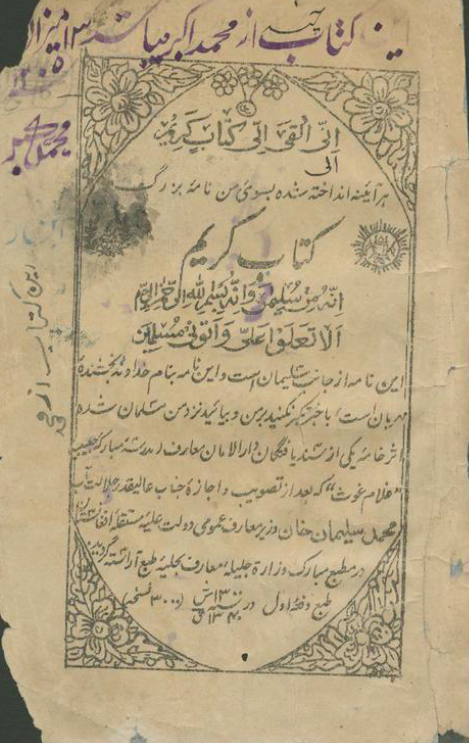 این کتاب از محمد اکبر میباشد ۱۳ میزان
محمد اکبر
انی القی الی کتاب کریم
الی
هر آئینه انداخته شده بسوی من نامه بزرگ
کتاب کریم
انه من سلیمن وانه بسم الله الرحمن الرحیم
الا تعلوا علی واتونی مسلمین
این نامه از جانب سلیمان است و این نامه بنام خداوند بخشنده
مهربان است باخبر تکبر نکنید بر من و بیائید نزد من مسلمان شده
اثر خامه یکی از سند یافتگان دارالامان معارف (مدرسه مبارکه حبیبیه)
"غلام غوث" که بعد از تصویب و اجازه جناب عالیقدر جلالت مآب
محمد سلیمان خان وزیر معارف عمومی دولت علیه مستقله افغانستان
در مطبع مبارک وزارة جلیله معارف بحلیه طبع آراسته گردید
طبع دفعه اول در سنه ۱۳۰۰ش (۳۰۰۰ نسخه)
۱۳۴۰ق
این کتاب از